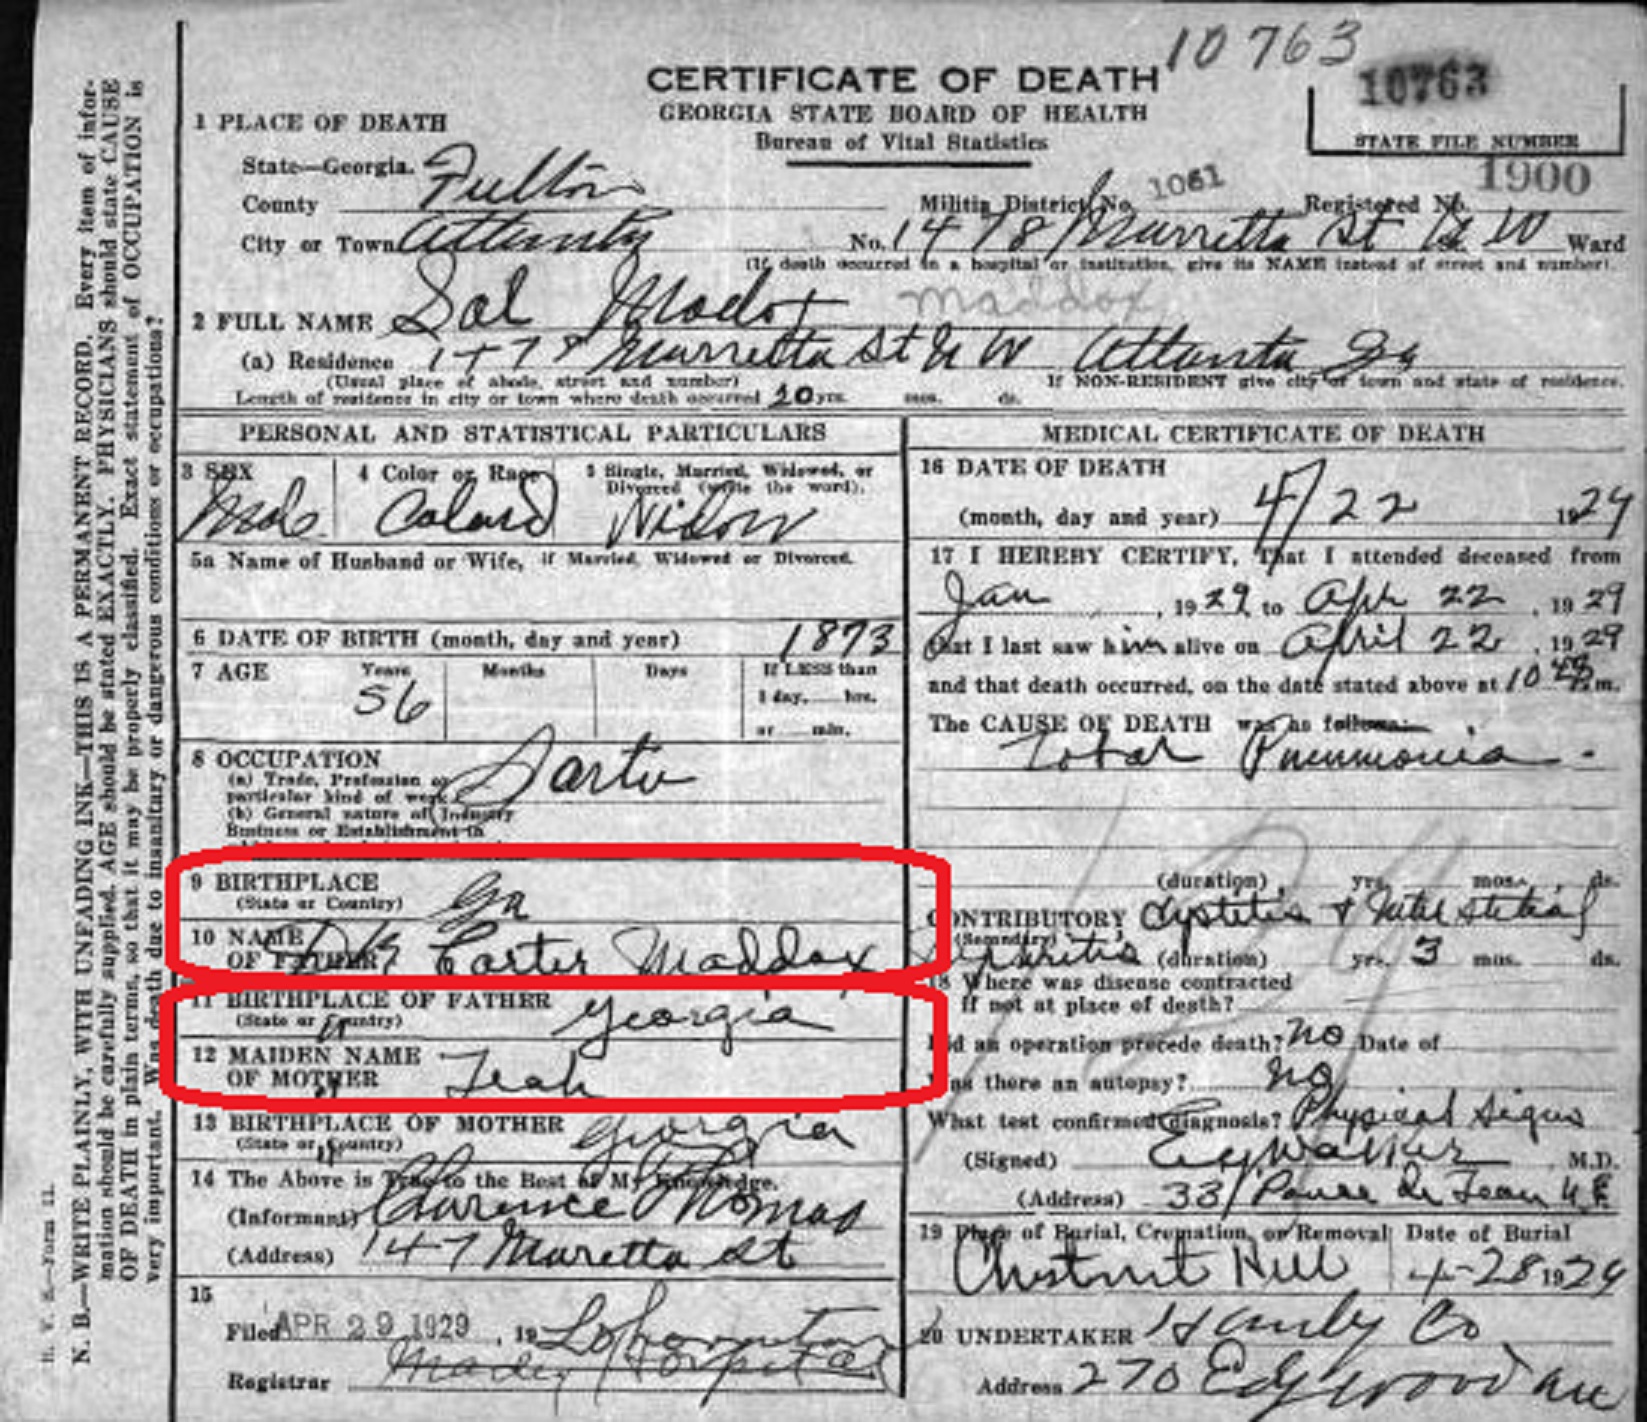 10763
CERTIFICATE OF DEATH
10763
GEORGIA STATE BOARD OF HEALTH
Bureau of Vital Statistics
STATE FILE NUMBER
1 PLACE OF DEATH
State—Georgia.
County Fulton
Militia District No. 1061
Registered No. 1900
City or Town Atlanta
No. 1478 Marretta St N W Ward
(If death occurred in a hospital or institution, give its NAME instead of street and number).
2 FULL NAME Sol Madox maddox
(a) Residence 1478 Marretta St N W Atlanta Ga
(Usual place of abode, street and number)
If NON-RESIDENT give city or town and state of residence.
Length of residence in city or town where death occurred 20 yrs. mos. ds.
PERSONAL AND STATISTICAL PARTICULARS
3 SEX Male
4 Color or Race Colard
5 Single, Married, Widowed, or Divorced (write the word). Widow
5a Name of Husband or Wife, if Married, Widowed or Divorced.
6 DATE OF BIRTH (month, day and year) 1873
7 AGE Years 56 Months Days If LESS than
1 day, hrs.
or min.
8 OCCUPATION
(a) Trade, Profession or
particular kind of work
(b) General nature of Industry
Business or Establishment in
9 BIRTHPLACE
(State or Country) Ga
10 NAME
OF FATHER Carter Maddox
11 BIRTHPLACE OF FATHER
(State or Country) Georgia
12 MAIDEN NAME
OF MOTHER Leah
13 BIRTHPLACE OF MOTHER
(State or Country) Georgia
14 The Above is True to the Best of My Knowledge.
(Informant) Clarence Thomas
(Address) 147 Maretta St
15
Filed APR 29 1929, 19
Registrar
MEDICAL CERTIFICATE OF DEATH
16 DATE OF DEATH
(month, day and year) 4/22 1929
17 I HEREBY CERTIFY, That I attended deceased from
Jan, 1929 to Apr 22, 1929
that I last saw him alive on April 22, 1929
and that death occurred, on the date stated above at 10 m.
The CAUSE OF DEATH was as follows:
Lobar Pneumonia
(duration) yrs. mos. ds.
CONTRIBUTORY Cystitis & Interstitial
(Secondary) Nephritis (duration) yrs. 3 mos. ds.
18 Where was disease contracted
if not at place of death?
Did an operation precede death? No Date of
Was there an autopsy? No
What test confirmed diagnosis? Physical Signs
(Signed) Walker M.D.
(Address) 331 Ponce de Leon
19 Place of Burial, Cremation, or Removal Date of Burial
Chestnut Hill 4-28 1929
20 UNDERTAKER Hanley Co
Address 270 Edgewood ave
N. B.—WRITE PLAINLY, WITH UNFADING INK—THIS IS A PERMANENT RECORD. Every item of infor-
mation should be carefully supplied. AGE should be stated EXACTLY. PHYSICIANS should state CAUSE
OF DEATH in plain terms, so that it may be properly classified. Exact statement of OCCUPATION is
very important. Was death due to insanitary or dangerous conditions or occupations?